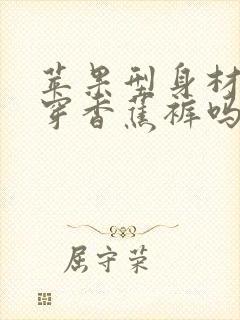 苹果型身材
穿香蕉裤吗
屈守荣